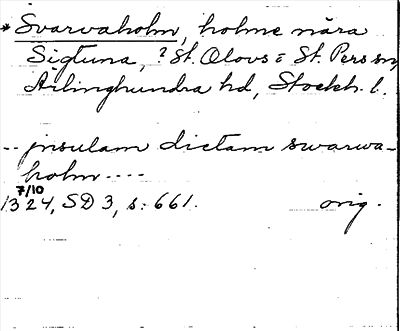 * Svarvaholm, holme nära
Sigtuna, ? St. Olovs = St. Pers sn,
Ärlinghundra hd, Stockh. l.
-- jnsulam dictam swarwa-
holm ----
7/10
1324, SD 3, s. 661. orig.